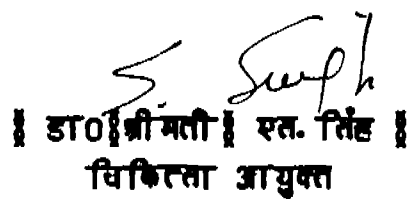 S. Singh
॥ डा०॥श्रीमती॥ एस. सिंह ॥
चिकित्सा आयुक्त